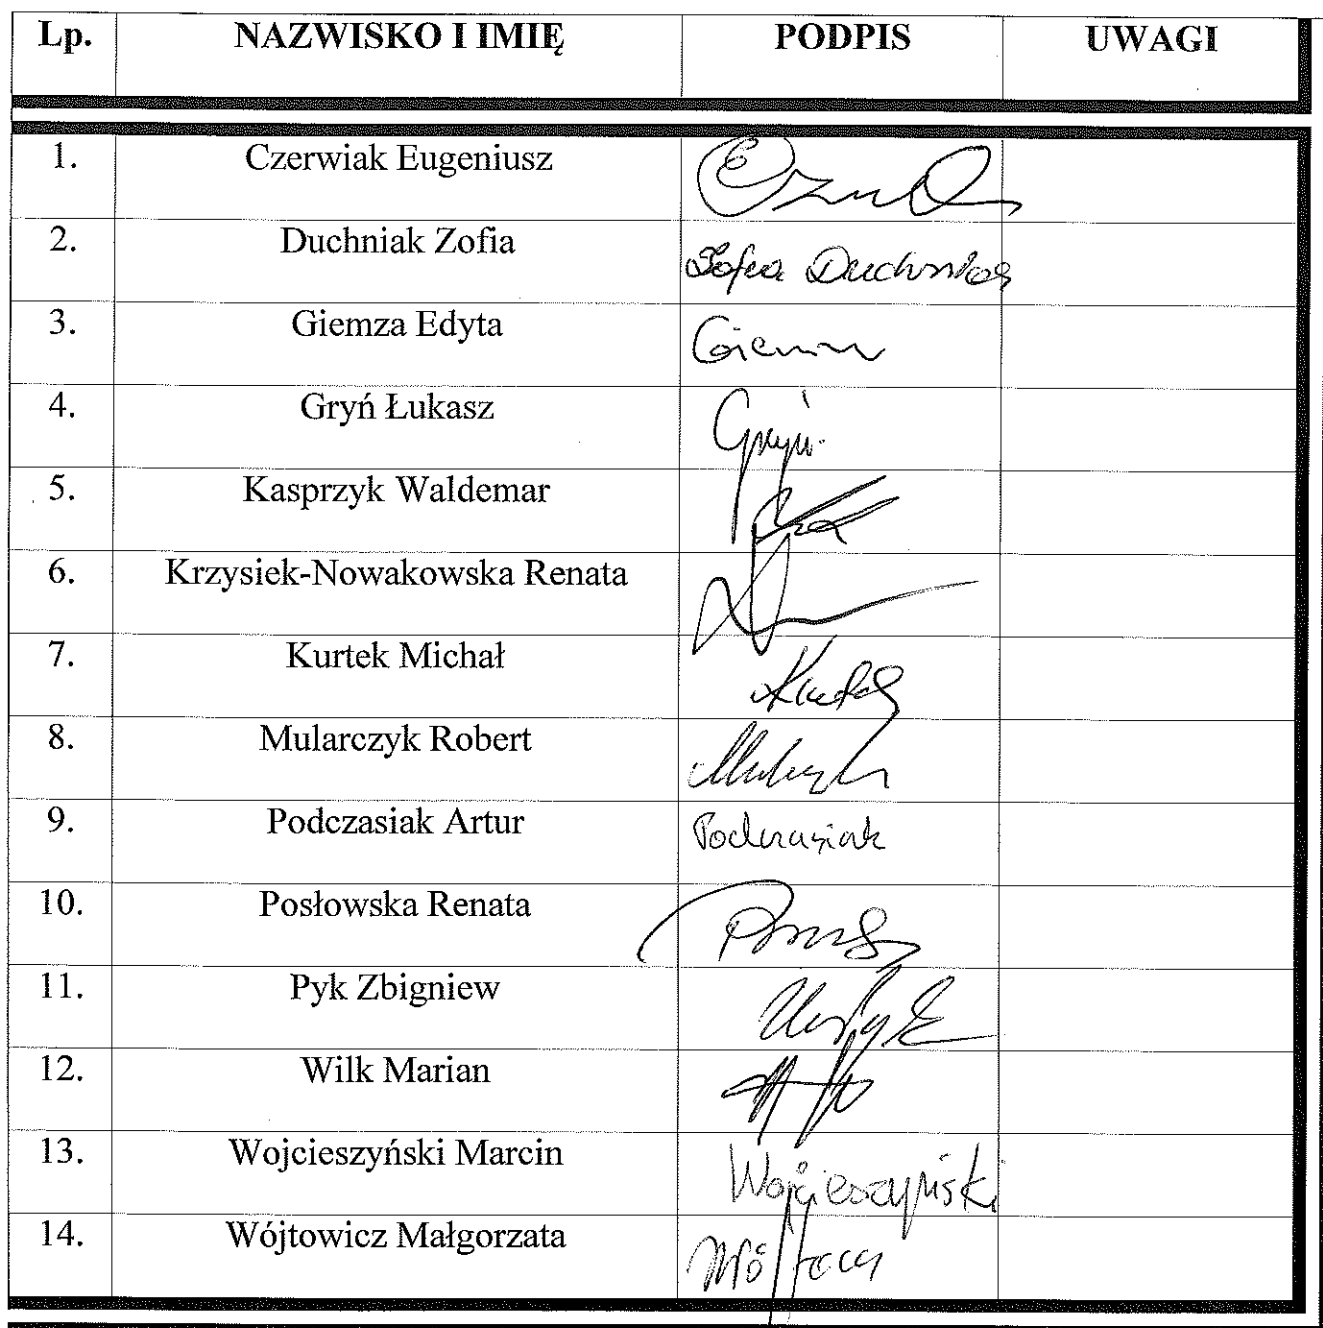 Lp. NAZWISKO I IMIĘ PODPIS UWAGI
1. Czerwiak Eugeniusz
2. Duchniak Zofia Zofia Duchniak
3. Giemza Edyta
4. Gryń Łukasz Gryń
5. Kasprzyk Waldemar
6. Krzysiek-Nowakowska Renata
7. Kurtek Michał
8. Mularczyk Robert
9. Podczasiak Artur Podczasiak
10. Posłowska Renata
11. Pyk Zbigniew
12. Wilk Marian
13. Wojcieszyński Marcin Wojcieszyński
14. Wójtowicz Małgorzata